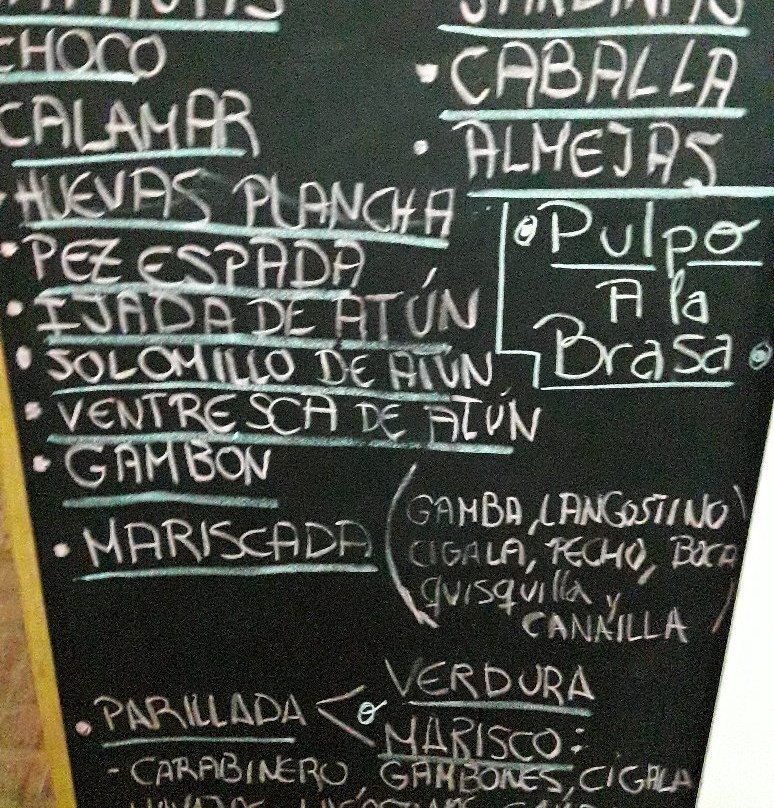 SARDINAS
CHOCO
CABALLA
CALAMAR
ALMEJAS
HUEVAS PLANCHA
PEZ ESPADA
IJADA DE ATÚN
SOLOMILLO DE ATÚN
VENTRESCA DE ATÚN
GAMBON
Pulpo
A la
Brasa
MARISCADA
(GAMBA, LANGOSTINO
CIGALA, PECHO, BOCA
quisquilla y
CANAILLA)
PARILLADA < o VERDURA
MARISCO:
- CARABINERO, GAMBONES, CIGALA